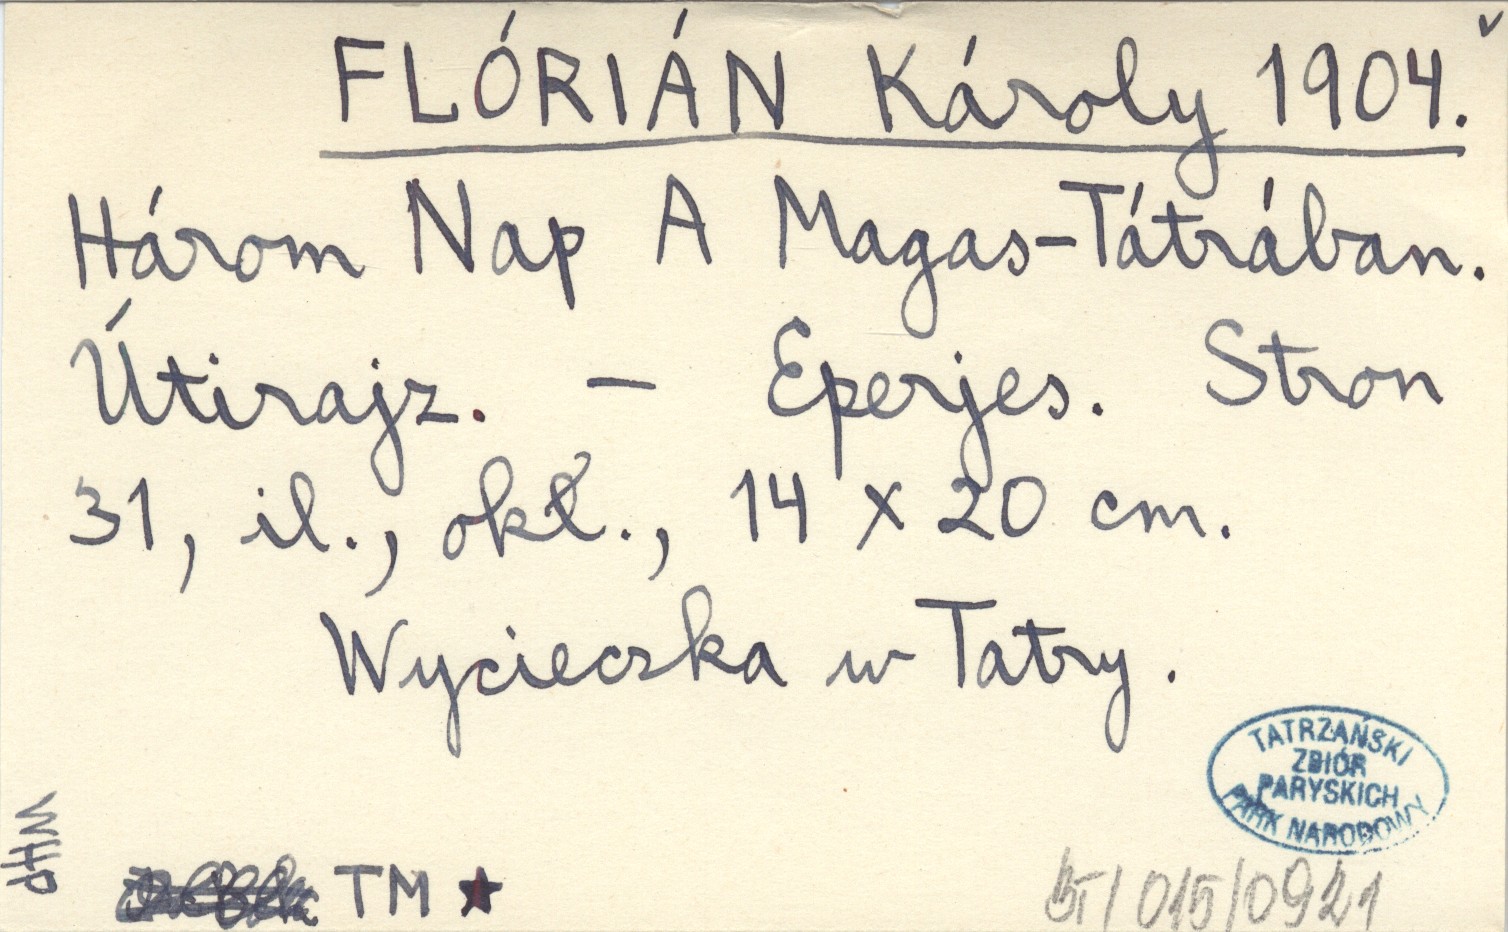 FLÓRIÁN Károly 1904.
Három Nap A Magas-Tátrában.
Útirajz. – Eperjes. Stron
31, il., okł., 14 x 20 cm.
Wycieczka w Tatry.
TATRZAŃSKI
ZBIÓR
PARYSKICH
PARK NARODOWY
TM ★
/015/0921